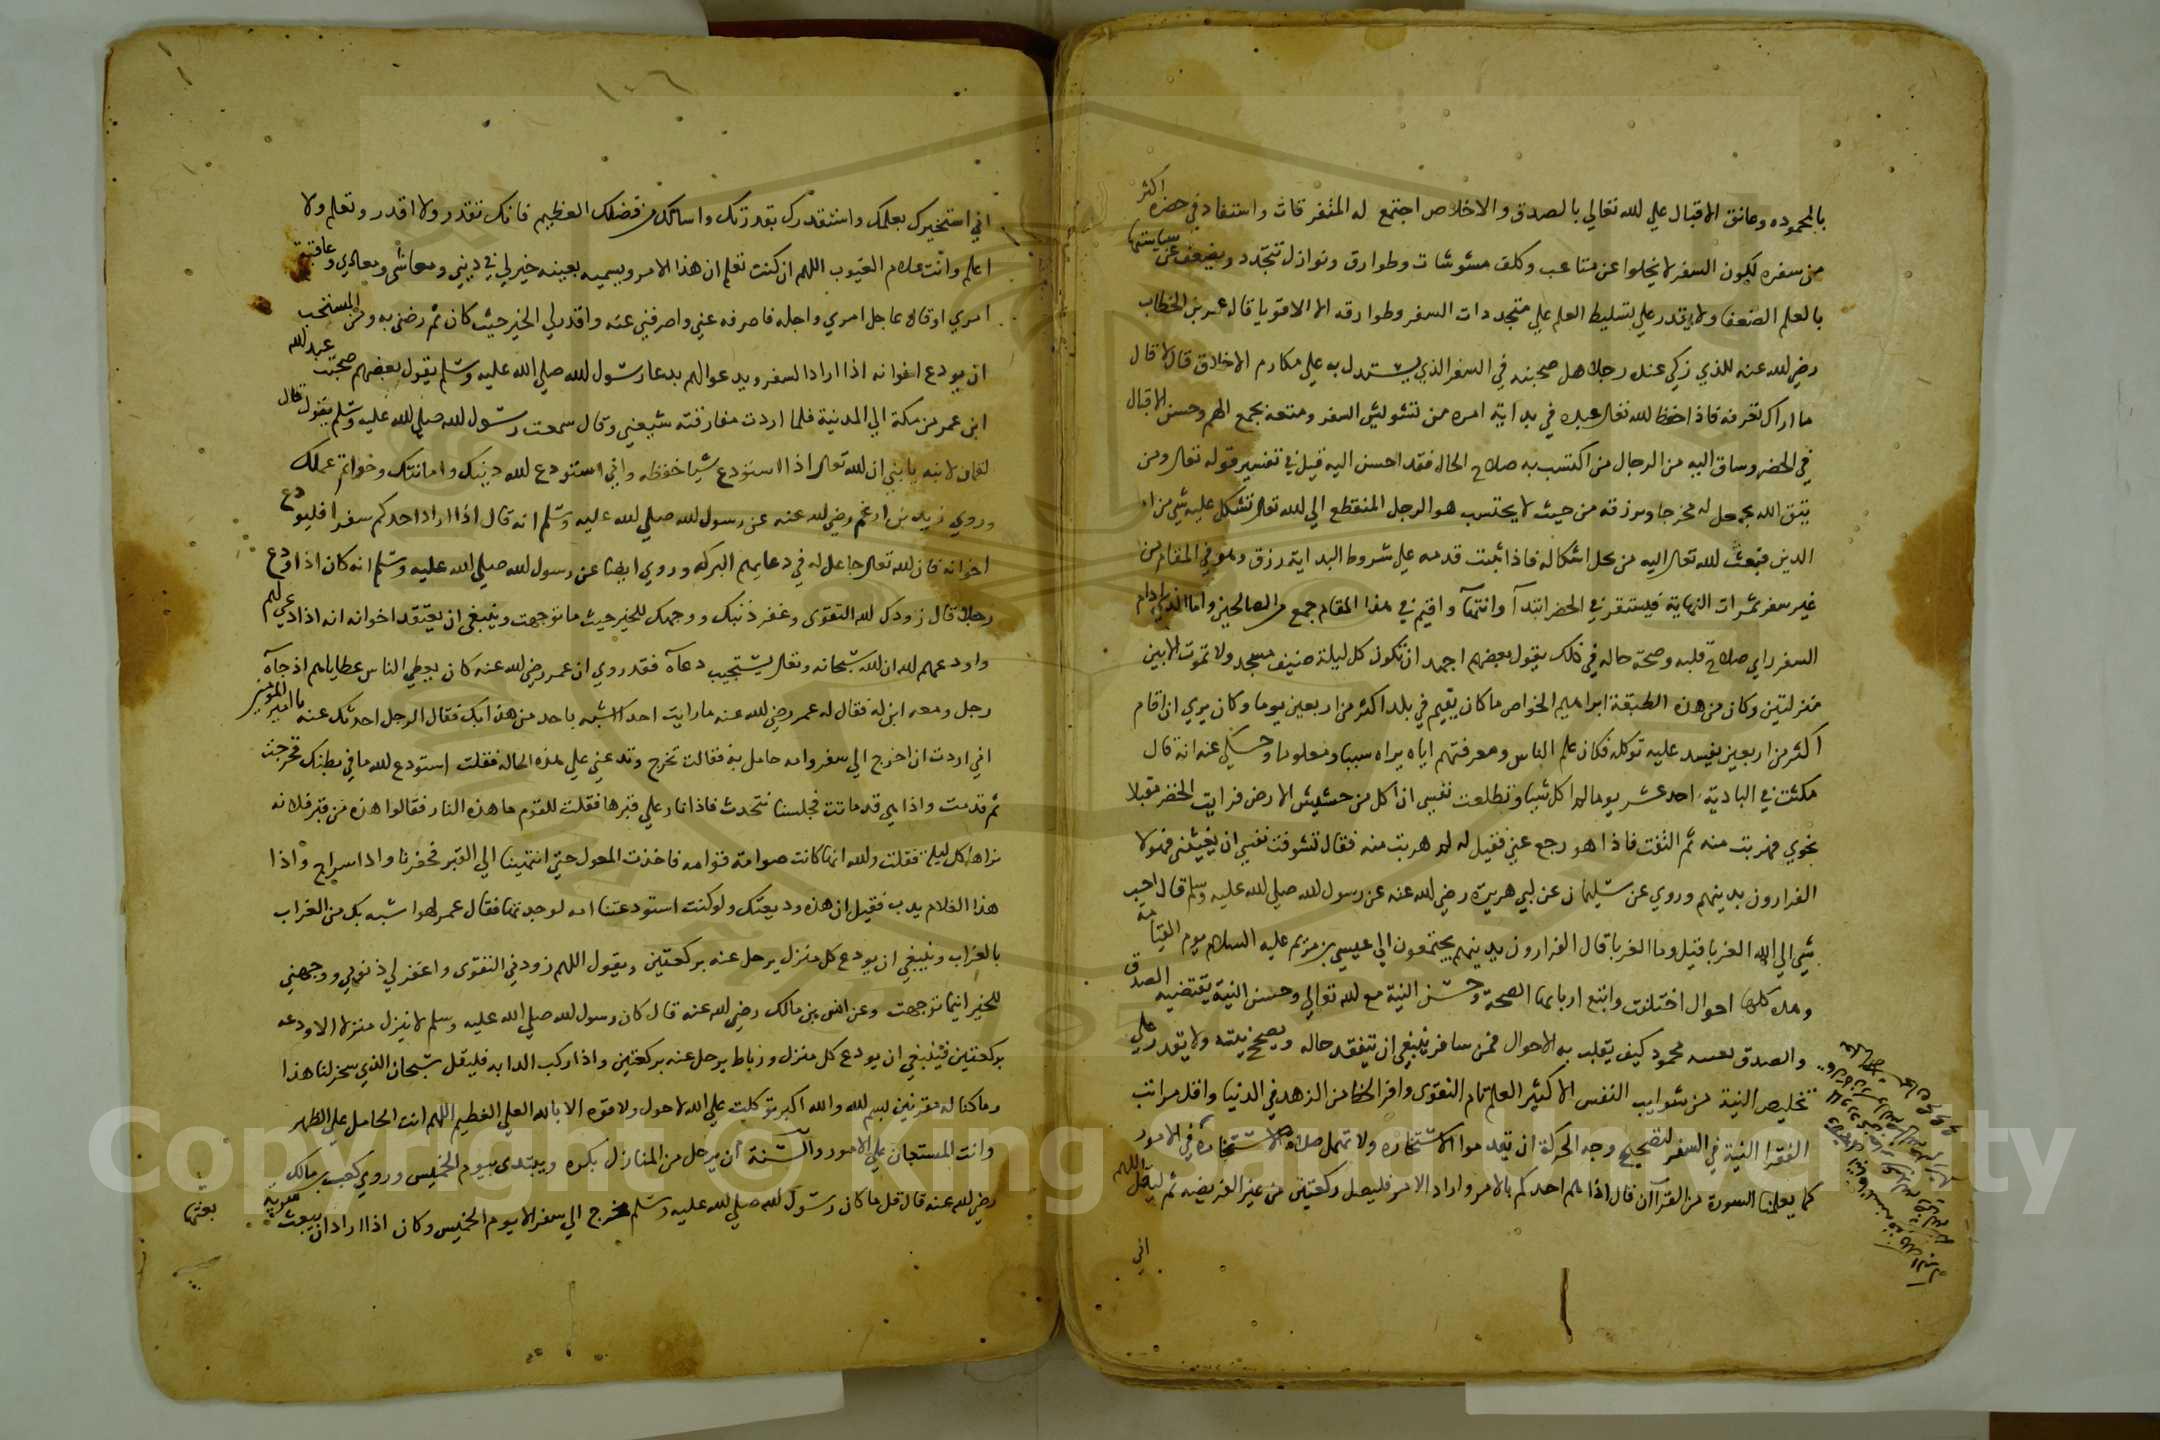 بالمحموده وعانق الاقبال علي لله تعالي بالصدق والاخلاص اجتمع له المتفرقات واستفاد في حضره اكثر
من سفره لكون السفر لا يخلوا عن متاعب وكلف مشوشات وطوارق ونوازل تتجدد ويضعف عن سياستها
بالعلم الضعفا ولا يقدر علي تسليط العلم علي متجددات السفر وطوارقه الا الاقويا قال عمر بن الخطاب
رضي لله عنه للذي زكي عنده رجلا هل صحبته في السفر الذي يستدل به علي مكارم الاخلاق قال لا قال
ما اراك تعرفه فاذا حفظ لله تعالى عبده في بداية امره من تشويش السفر ومتعه بجمع الهم وحسن الاقبال
في الحضر وساق اليه من الرجال من اكتسب به صلاح الحال فقد احسن اليه قيل في تفسير قوله تعالى ومن
يتق الله يجعل له مخرجا ويرزقه من حيث لا يحتسب هو الرجل المنقطع الي لله تعالى تشكل عليه شي من امر
الدين فبعث لله تعالى اليه من يحل اشكاله فاذا ثبت قدمه علي شروط البداية رزق وهو في المقام من
غير سفر ثمرات النهاية فيستقر في الحضر ابتدآ وانتهآ واقيم في هذا المقام جمع من الصالحين واما الذي ادام
السفر راي صلاح قلبه وصحة حاله في ذلك يقول بعضهم اجهد ان تكون كل ليلة ضيف مسجد ولا تموت الا بين
منزلتين وكان من هذه الطبقة ابراهيم الخواص ما كان يقيم في بلد اكثر من اربعين يوما وكان يري ان اقام
اكثر من اربعين يفسد عليه توكله فكان علم الناس ومعرفتهم اياه يراه سببا ومعلوما وحكي عنه انه قال
مكثت في البادية احد عشر يوما لم اكل شيا وتطلعت نفسي ان اكل من حشيش الارض فرايت الخضر مقبلا
نحوي فهربت منه ثم التفت فاذا هو رجع عني فقيل له لم هربت منه فقال تشوفت نفسي ان يغيثني فهولا
الفرارون بدينهم وروي عن سليمان عن ابي هريرة رضي لله عنه عن رسول لله صلي الله عليه وسلم قال احب
شي الي الله الغربا قيل وما الغربا قال الفرارون بدينهم يجتمعون الي عيسى بن مريم عليه السلام يوم القيامة
وهذه كلها احوال اختلفت واتبع اربابها الصحة وحسن النية مع لله تعالي وحسن النية يقتضيه الصدق
والصدق لعينه محمود كيف يقلب به الاحوال فمن سافر ينبغي ان يتفقد حاله ويصحح نيته ولا يقدر علي
تخليص النية من شوايب النفس الا كثير العلم تام التقوى وافر الحظ من الزهد في الدنيا
الفقرا النية في السفر لتصحيح وجه الحركة ان يقدموا الاستخاره ولا تهمل صلاة الاستخارة في الامور
كما يعلمنا السورة من القرآن قال اذا هم احدكم بالامر واراد الامر فليصل ركعتين من غير الفريضه ثم ليقل اللهم
اني
١٠٦
اني استخيرك بعلمك واستقدرك بقدرتك واسالك من فضلك العظيم فانك تقدر ولا اقدر وتعلم ولا
اعلم وانت علام الغيوب اللهم ان كنت تعلم ان هذا الامر ويسميه بعينه خير لي في ديني ومعاشي ومعادي وعاقبة
امري او قال عاجل امري واجله فاصرفه عني واصرفني عنه واقدر لي الخير حيث كان ثم رضني به ومن المستحب
ان يودع اخوانه اذا اراد السفر ويدعو لهم بدعا رسول لله صلي الله عليه وسلم يقول بعضهم صحبت عبد لله
ابن عمر من مكة الي المدينة فلما اردت مفارقته شيعني وقال سمعت رسول لله صلي لله عليه وسلم يقول قال
لقمان لابنه يا بني ان لله تعالى اذا استودع شيا حفظه واني استودع لله دينك وامانتك وخواتم عملك
وروي زيد بن ارقم رضي لله عنه عن رسول لله صلي لله عليه وسلم انه قال اذا اراد احدكم سفرا فليودع
اخوانه فان لله تعالى جاعل له في دعايهم البركه وروي ايضا عن رسول لله صلي لله عليه وسلم انه كان اذا ودع
رجلا قال زودك لله التقوى وغفر ذنبك ووجهك للخير حيث ما توجهت وينبغي ان يعتقد اخوانه انه اذا دعي لهم
واودعهم لله ان لله سبحانه وتعالى يستجيب دعآه فقد روي ان عمر رضي لله عنه كان يعطي الناس عطاياهم اذ جآه
رجل ومعه ابن له فقال له عمر رضي لله عنه ما رايت احدا اشبه باحد من هذا بك فقال الرجل احدثك عنه يا امير المومنين
اني اردت ان اخرج الي سفر وامه حامل به فقالت تخرج وتدعني علي هذه الحاله فقلت استودع لله ما في بطنك فخرجت
ثم قدمت واذا هي قد ماتت فجلسنا نتحدث فاذا نار علي قبرها فقلت للقوم ما هذه النار فقالوا هذه من قبر فلانه
نراها كل ليلة فقلت ولله انها كانت صوامة قوامه فاخذت المعول حتي انتهينا الي القبر فحفرنا واذا سراج واذا
هذا الغلام يدب فقيل ان هذه وديعتك ولو كنت استودعتنا امه لوجدتها فقال عمر لهوا شبه بك من الغراب
بالغراب وينبغي ان يودع كل منزل يرحل عنه بركعتين ويقول اللهم زودني التقوى واغفر لي ذنوبي ووجهني
للخير اينما توجهت وعن انس بن مالك رضي لله عنه قال كان رسول لله صلي الله عليه وسلم لا ينزل منزلا الا ودعه
بركعتين فينبغي ان يودع كل منزل ورباط يرحل عنه بركعتين واذا ركب الدابه فليقل سبحان الذي سخر لنا هذا
وما كنا له مقرنين بسم لله والله اكبر توكلت علي الله لا حول ولا قوه الا بالله العلي العظيم اللهم انت الحامل علي الظهر
وانت المستعان علي الامور والسنة ان يرحل من المنازل بكره ويبتدى بيوم الخميس وروي كعب بن مالك
رضي لله عنه قال قل ما كان رسول لله صلي لله عليه وسلم يخرج الي سفر الا يوم الخميس وكان اذا اراد ان يبعث سرية
بعثها
Copyright © King Saud University